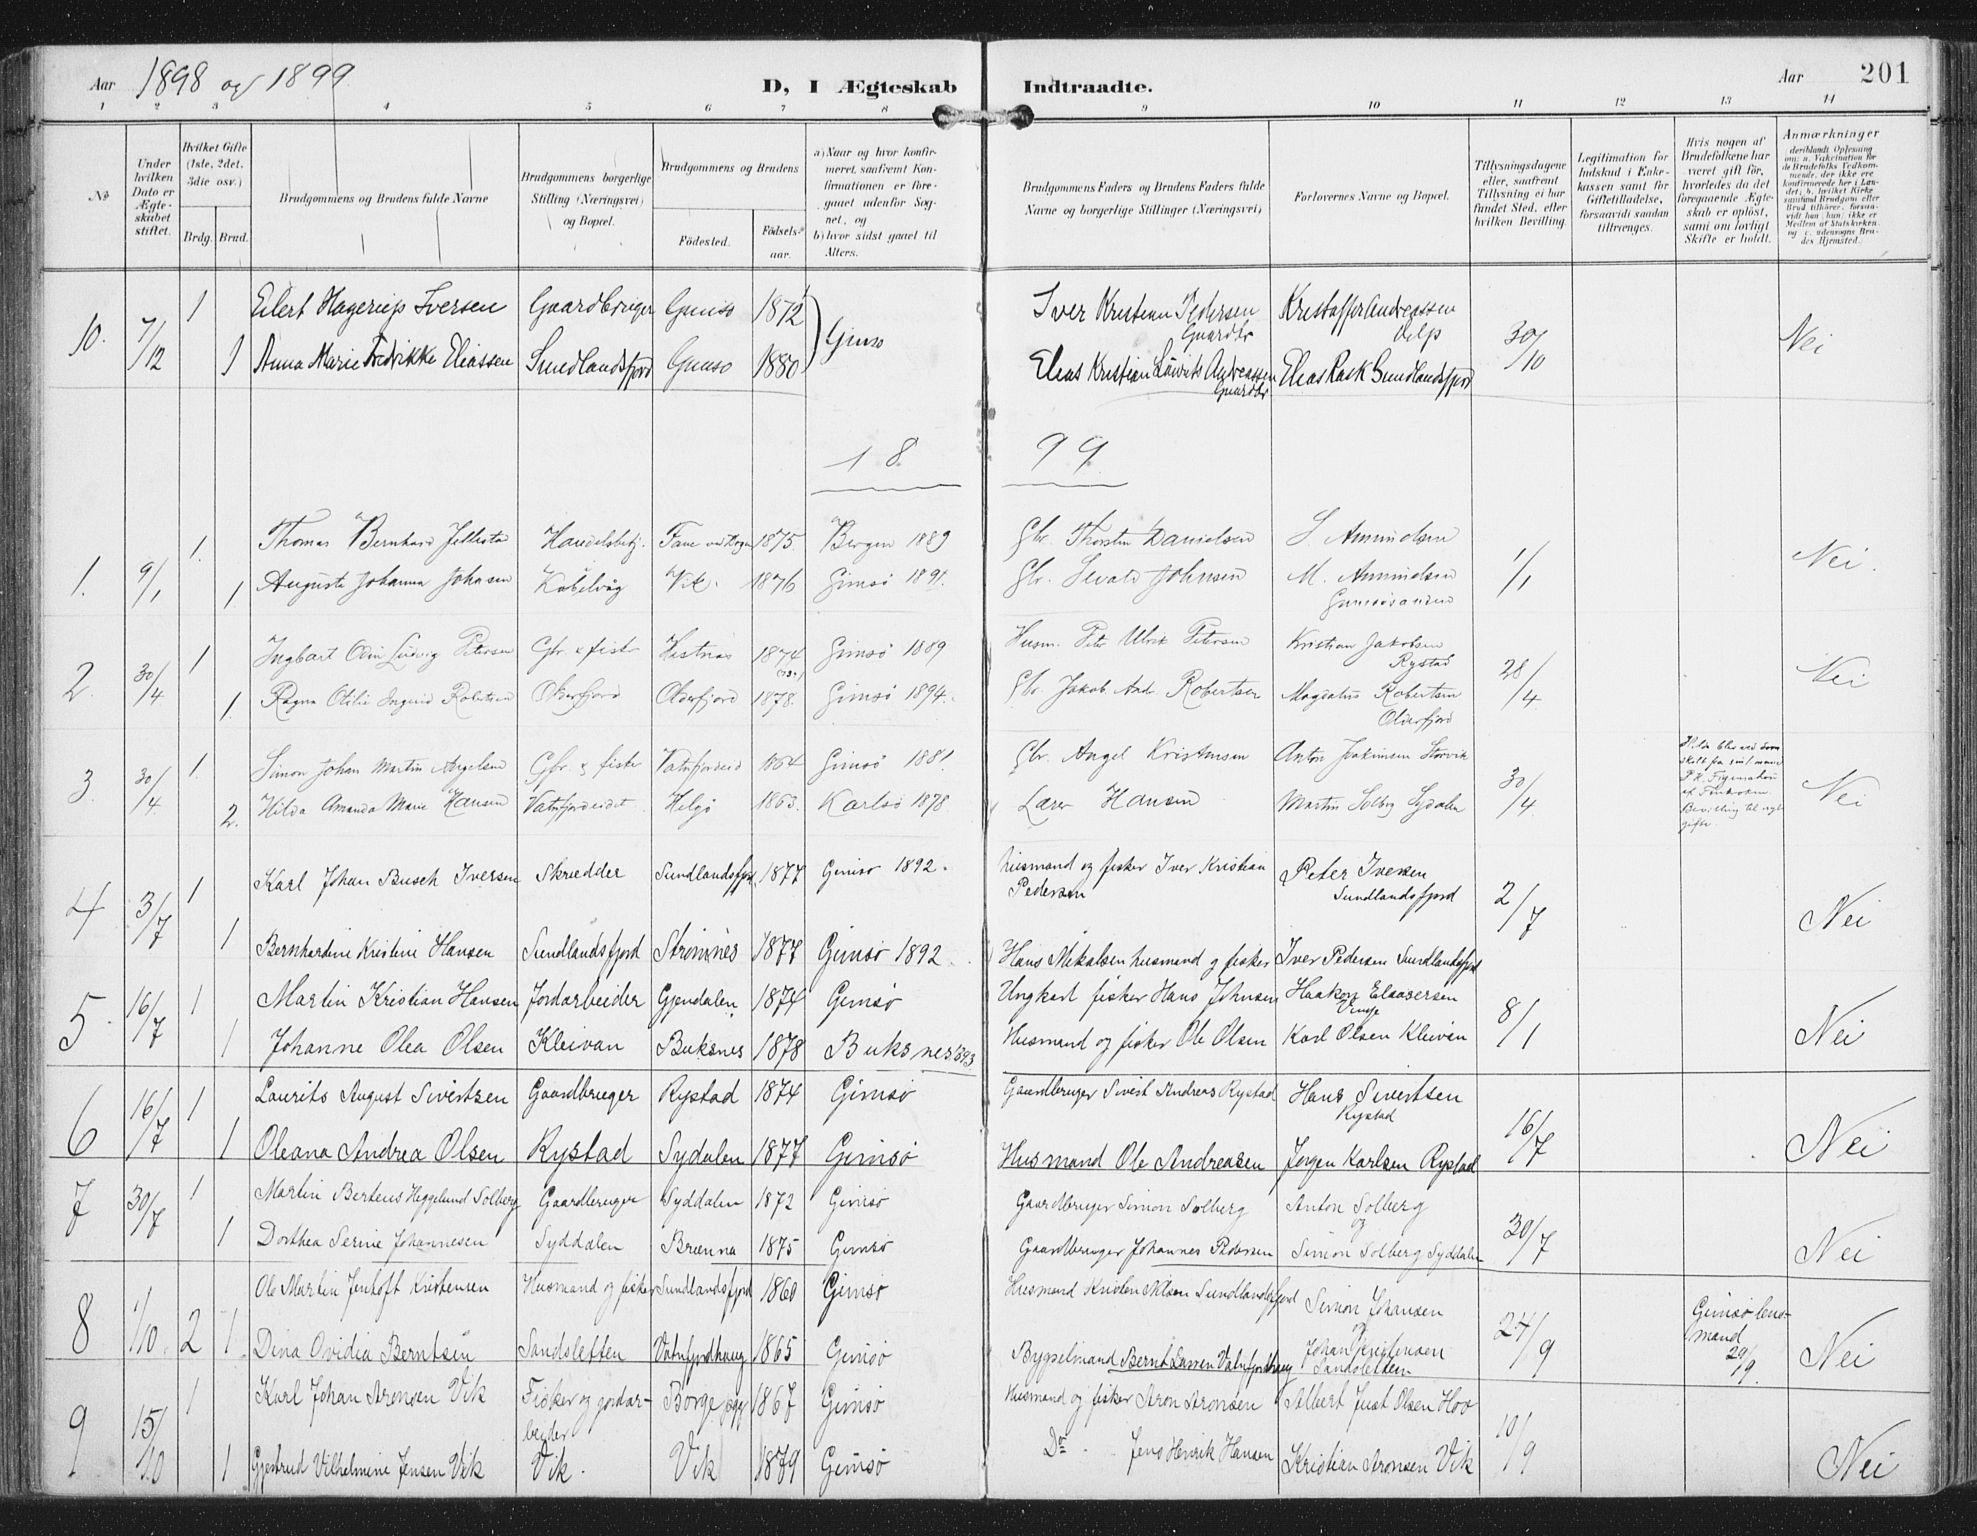 Aar 1898 og 1899
D, I Ægteskab Indtraadte.
Aar 201
1 2 3 4 5 6 7 8 9 10 11 12 13 14
No
Under hvilken Dato er Ægteskabet stiftet.
Hvilket Gifte (1ste, 2det, 3die osv.)
Brdg. Brud.
Brudgommens og Brudens fulde Navne
Brudgommens borgerlige Stilling (Næringsvei) og Bopæl.
Brudgommens og Brudens
Fødested. Fødsels-aar.
a) Naar og hvor konfirmeret, saafremt Konfirmationen er foregaaet udenfor Sognet, og
b) hvor sidst gaaet til Alters.
Brudgommens Faders og Brudens Faders fulde Navne og borgerlige Stillinger (Næringsvei)
Forlovernes Navne og Bopæl.
Tillysningsdagene eller, saafremt Tillysning ei har fundet Sted, efter hvilken Bevilling.
Legitimation for Indskud i Enkekassen samt for Giftetilladelse, forsaavidt saadan tiltrænges.
Hvis nogen af Brudefolkene har været gift før, hvorledes da det foregaaende Ægteskab er opløst, samt om lovligt Skifte er holdt.
Anmærkninger
10. 7/12 1 Eilert Hagerup Iversen Gaardbruger Gimsø 1872 Gimsø Iver Kristian Pedersen Gaardbr Kristoffer Andreassen 30/10 Nei
1 Anna Marie Fredrikke Eliassen Sundlandsfjord Gimsø 1880 Elias Kristian Laurits Andreassen Gaardbr Elias Rask Sundlandsfjord
18 99
1. 9/1 1. Thomas Bernhard Handelsbetj. Fane 1875. Bergen 1889 Gbr. Thorsten Danielsen S. Amundsen 1/1 Nei.
1 Auguste Johanna Johnsen Kabelvåg Vik. 1876 Gimsø 1891. Gbr. Sivald Johnsen M. Amundsen
2. 30/4 1 Ingbart Odin Ludvig Petersen Gbr. & fisker 1874 Gimsø 1889 Husm. Peter Ulrik Petersen Kristian Jakobsen Rystad 28/4 Nei
1. Ragna Otilie Ingerid Robertsen Olderfjord Olderfjord 1878. Gimsø 1894. Gbr. Jakob And. Robertsen Magdalus Robertsen Olderfjord
3. 30/4. 1. Simon Johan Martin Angelsen Gbr. & fisker Vatnfjordeid 1864 Gimsø 1881. Gbr. Angel Kristensen Anton Joakimsen Storvik 30/4 Nei
2. Hilda Amanda Marie Hansen Vatnfjordeidet. Helgø 1863. Karlsø 1878. Lærer Hansen Martin Solberg Sydalen
4 3/7 1 Karl Johan Busch Iversen Skrædder Sundlandsfjord 1877 Gimsø 1892. husmand og fisker Iver Kristian Pedersen Peter Iversen Sundlandsfjord 2/7 Nei
1 Bernhardine Kristine Hansen Sundlandsfjord Strømnes 1877 Gimsø 1892. Hans Mikalsen husmand og fisker Iver Pedersen Sundlandsfjord
5. 16/7 1 Martin Kristian Hansen Jordarbeider Gjendalen 1874 Gimsø Ungkarl fisker Hans Johnsen Haakon Elassersen 8/1 Nei
1 Johanne Olea Olsen Kleivan Buksnes 1878 Buksnes 1893 Husmand og fisker Ole Olsen Karl Olsen Kleivan
6 16/7 1 Laurits August Sivertsen Gaardbruger Rystad 1874 Gimsø Gaardbruger Sivert Andreas Rystad Hans Sivertsen Rystad 16/7 Nei
1 Oleana Andrea Olsen Rystad Sydalen 1877 Gimsø Husmand Ole Andreasen Jørgen Karlsen Rystad
7 30/7 1 Martin Bertens Heggelund Solberg Gaardbruger Syddalen 1872 Gimsø Gaardbruger Simon Solberg Anton Solberg og 30/7 Nei
1 Dorthea Serine Johannesen Syddalen Brenna 1875 Gimsø Gaardbruger Johannes Pedersen Simon Solberg Syddalen
8 1/10. 2 Ole Martin Jentoft Kristensen Husmand og fisker Sundlandsfjord 1860 Gimsø Husmand Kristen Nilsen Sundlandsfjord Simon Johansen og 24/9 Gimsø lensmand 29/9. Nei
1. Dina Ovidia Berntsen Sandsletten Vatnfjordhaug 1865 Gimsø Bygselmand Bernt Larsen Vatnfjordhaug Johan Kristensen Sandsletten
9 15/10 1 Karl Johan Aronsen Vik Fisker og jordarbeider Borge 1867 Gimsø Husmand og fisker Aron Aronsen Albert Just Olsen Hov 10/9 Nei
1 Gjertrud Vilhelmine Jensen Vik Vik. Vik 1879 Gimsø Do Jens Henrik Hansen Kristian Aronsen Vik